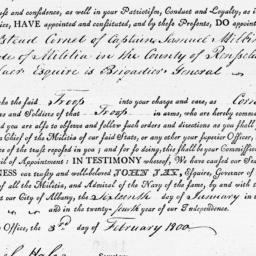 ust and confidence, as well in your Patriotism, Conduct and Loyalty, as i
ies, HAVE appointed and constituted, and by these Presents, DO appoint
stead Cornet of Captain Samuel Wilbur
de of Militia in the County of Rensselae
Carr Esquire is Brigadier General
ke the said Troop into your charge and care, as Corn
ers and Soldiers of that Troop in arms, who are hereby comma
nd you are also to observe and follow such orders and directions as you shall
Chief of the Militia of our said State, or any other your Superior Officer,
nce of the trust reposed in you; and for so doing, this shall be your Commission
cil of Appointment: IN TESTIMONY whereof, We have caused our Sea
NESS our trusty and well-beloved JOHN JAY, Esquire, Governor of
of all the Militia, and Admiral of the Navy of the same, by and with t
our City of Albany, the Sixteenth day of January in
and in the twenty-fourth year of our Independence.
Office, the 3rd day of February 1800